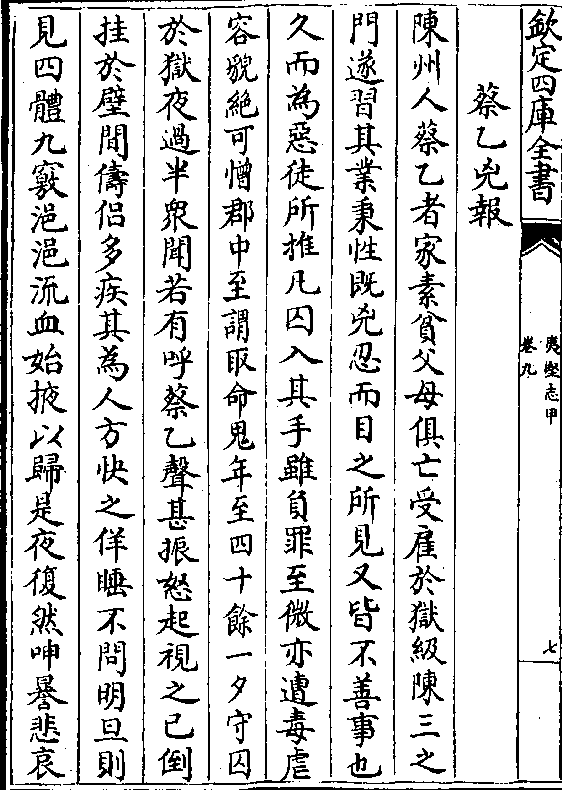 欽定四庫全書
夷堅志甲
卷九
七
蔡乙兇報
陳州人蔡乙者家素貧父母俱亡受雇於獄級陳三之
門遂習其業秉性既兇忍而目之所見又皆不善事也
久而為惡徒所推凡囚入其手雖負罪至微亦遭毒虐
容貌絶可憎郡中至謂取命鬼年至四十餘一夕守囚
於獄夜過半衆聞若有呼蔡乙聲甚振怒起視之已倒
挂於壁間儔侣多疾其為人方快之佯睡不問明旦則
見四體九竅浥浥流血始掖以歸是夜復然呻譽悲哀